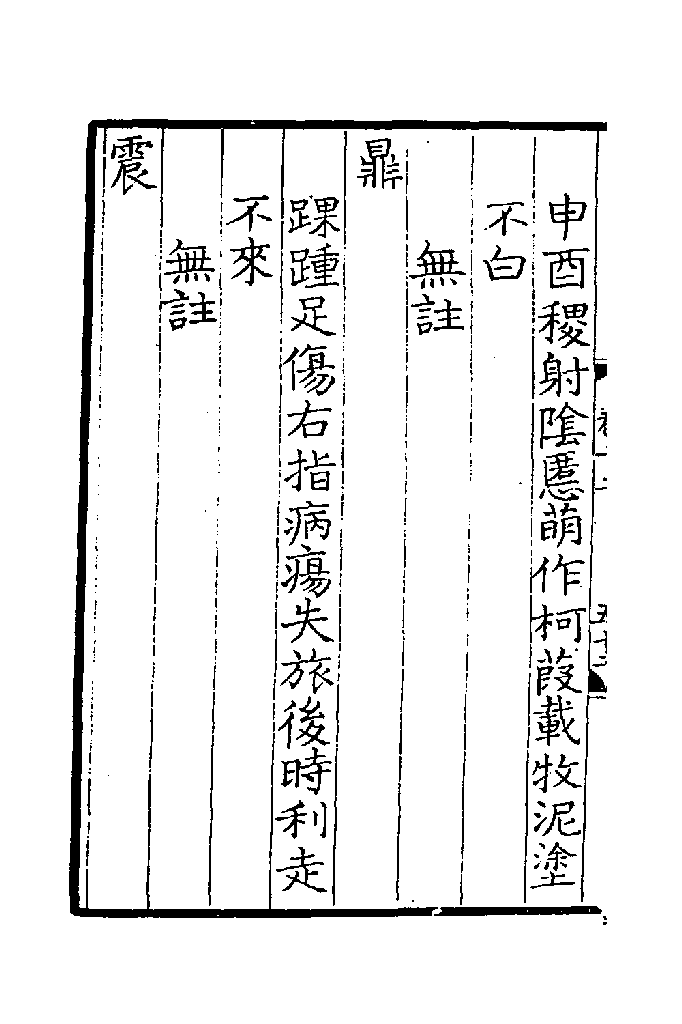 申酉稷射陰慝萌作柯葭載牧泥塗
不白
無註
鼎
踝踵足傷右指病瘍失旅後時利走
不來
無註
震